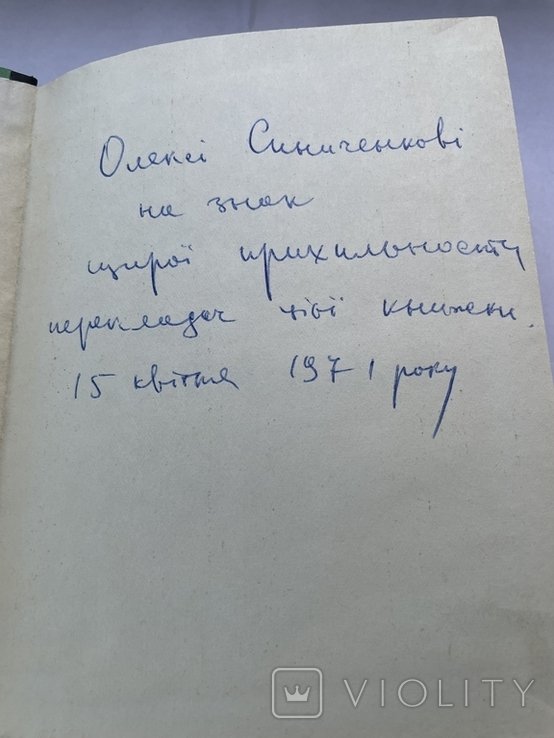 Олексі Синиченкові
на знак
щирої прихильности
перекладач цієї книжки.
15 квітня 1971 року
VIOLITY